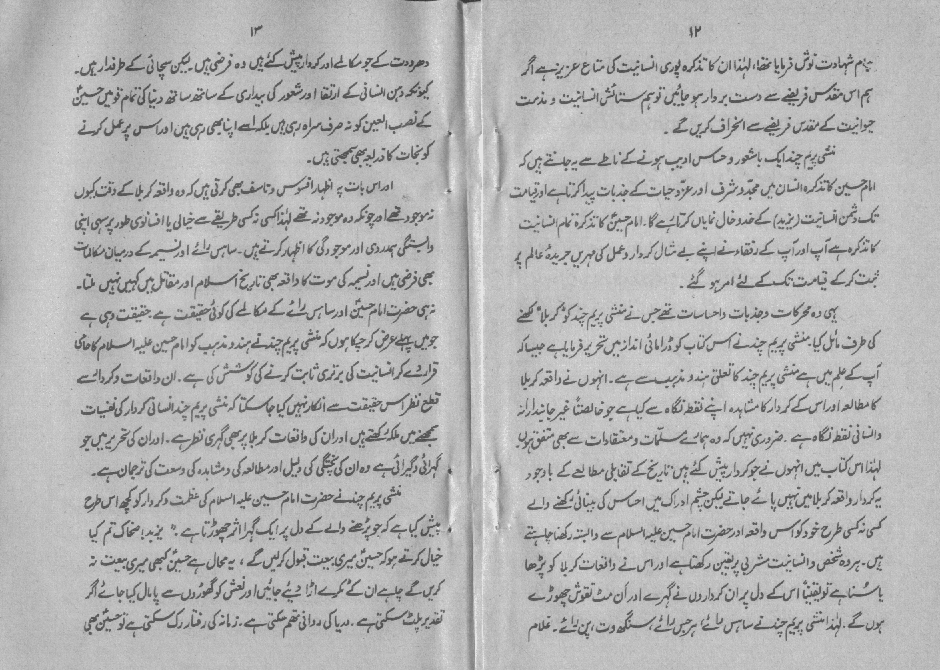 ۱۲
جام شہادت نوش فرمایا تھا، لہٰذا ان کا تذکرہ پوری انسانیت کی متاع عزیز ہے اگر
ہم اس مقدس فریضے سے دست بردار ہو جائیں تو ہم ستائش انسانیت و مذمت
حیوانیت کے مقدس فریضے سے انحراف کریں گے ۔
منشی پریم چند ایک باشعور و حساس ادیب ہونے کے ناطے سے یہ جانتے ہیں کہ
امام حسین کا تذکرہ انسان میں مجد و شرف اور عزّ و حیات کے جذبات پیدا کرتا ہے اور قیامت
تک دشمن انسانیت (یزید) کے خدوخال نمایاں کرتا رہے گا۔ امام حسینؑ کا تذکرہ تمام انسانیت
کا تذکرہ ہے آپ اور آپ کے رفقاء نے اپنے بے مثال کردار و عمل کی مہریں جریدۂ عالم پر
ثبت کر کے قیامت تک کے لئے امر ہو گئے ۔
یہی وہ محرکات و جذبات و احساسات تھے جس نے منشی پریم چند کو "کربلا" لکھنے
کی طرف مائل کیا۔ منشی پریم چند نے اس کتاب کو ڈرامائی انداز میں تحریر فرمایا ہے جیسا کہ
آپ کے علم میں ہے منشی پریم چند کا تعلق ہندو مذہب سے ہے۔ انہوں نے واقعہ کربلا
کا مطالعہ اور اس کے کردار کا مشاہدہ اپنے نقطۂ نگاہ سے کیا ہے جو خالصتاً غیر جانبدارانہ
و انسانی نقطۂ نگاہ ہے۔ ضروری نہیں کہ وہ ہمارے مسلّمات و معتقدات سے بھی متفق ہوں
لہٰذا اس کتاب میں انہوں نے جو کردار پیش کئے ہیں تاریخ کے تقابلی مطالعے کے باوجود
یہ کردار واقعہ کربلا میں نہیں پائے جاتے لیکن چشم ادراک میں احساس کی بینائی رکھنے والے
کسی نہ کسی طرح خود کو اس واقعہ اور حضرت امام حسین علیہ السلام سے وابستہ رکھنا چاہتے
ہیں۔ ہر وہ شخص جو انسانیت مشربی پر یقین رکھتا ہے اور اس نے واقعات کربلا کو پڑھا
یا سنا ہے تو یقیناً اس کے دل پر ان کرداروں نے گہرے اور ان مٹ نقوش چھوڑے
ہوں گے۔ لہٰذا منشی پریم چند نے ساہس رائے، ہرجس رائے، سنگھ دت، پن رائے۔ غلام
۱۳
دھردت کے جو مکالمے اور کردار پیش کئے ہیں وہ فرضی ہیں۔ لیکن سچائی کے طرفدار ہیں۔
کیونکہ ذہن انسانی کے ارتقا اور شعور کی بیداری کے ساتھ ساتھ دنیا کی تمام قومیں حسینؑ
کے نصب العین کو نہ صرف سراہ رہی ہیں بلکہ اسے اپنا بھی رہی ہیں اور اس پر عمل کرنے
کو نجات کا ذریعہ بھی سمجھتی ہیں۔
اور اس بات پہ اظہار افسوس و تاسف بھی کرتی ہیں کہ وہ واقعہ کربلا کے وقت کیوں
نہ موجود تھے اور چونکہ وہ موجود نہ تھے لہٰذا کسی نہ کسی طریقے سے خیالی یا افسانوی طور پر سہی اپنی
وابستگی ہمدردی اور موجودگی کا اظہار کرتے ہیں۔ ساہس رائے اور نسیمہ کے درمیان مکالمات
بھی فرضی ہیں اور نسیمہ کی موت کا واقعہ بھی تاریخ اسلام اور مقاتل میں کہیں نہیں ملتا۔
نہ ہی حضرت امام حسینؑ اور ساہس رائے کے مکالمے کی کوئی حقیقت ہے۔ حقیقت وہی ہے
جو میں پہلے عرض کر چکا ہوں کہ منشی پریم چند نے ہندو مذہب کو امام حسین علیہ السلام کا حامی
قرار دے کر انسانیت کی برتری ثابت کرنے کی کوشش کی ہے۔ ان واقعات و کردار سے
قطع نظر اس حقیقت سے انکار نہیں کیا جا سکتا کہ منشی پریم چند انسانی کردار کی نفسیات
سمجھنے میں ملکہ رکھتے ہیں اور ان کی واقعات کربلا پر بھی گہری نظر ہے۔ اور ان کی تحریر میں جو
گہرائی و گیرائی ہے وہ ان کی پختگی کی دلیل اور مطالعہ کی و مشاہدہ کی وسعت کی ترجمان ہے۔
منشی پریم چند نے حضرت امام حسین علیہ السلام کی عظمت و کردار کو کچھ اس طرح
پیش کیا ہے کہ جو پڑھنے والے کے دل پر ایک گہرا اثر چھوڑتا ہے۔ "یزید! ضحاک تم کیا
خیال کرتے ہو کہ حسینؑ میری بیعت قبول کر لیں گے، یہ محال ہے حسینؑ کبھی میری بیعت نہ
کریں گے چاہے ان کے ٹکڑے اڑا دیئے جائیں اور نعش کو گھوڑوں سے پامال کیا جائے اگر
تقدیر پلٹ سکتی ہے۔ دریا کی روانی تھم سکتی ہے۔ زمانہ کی رفتار رک سکتی ہے تو حسینؑ بھی